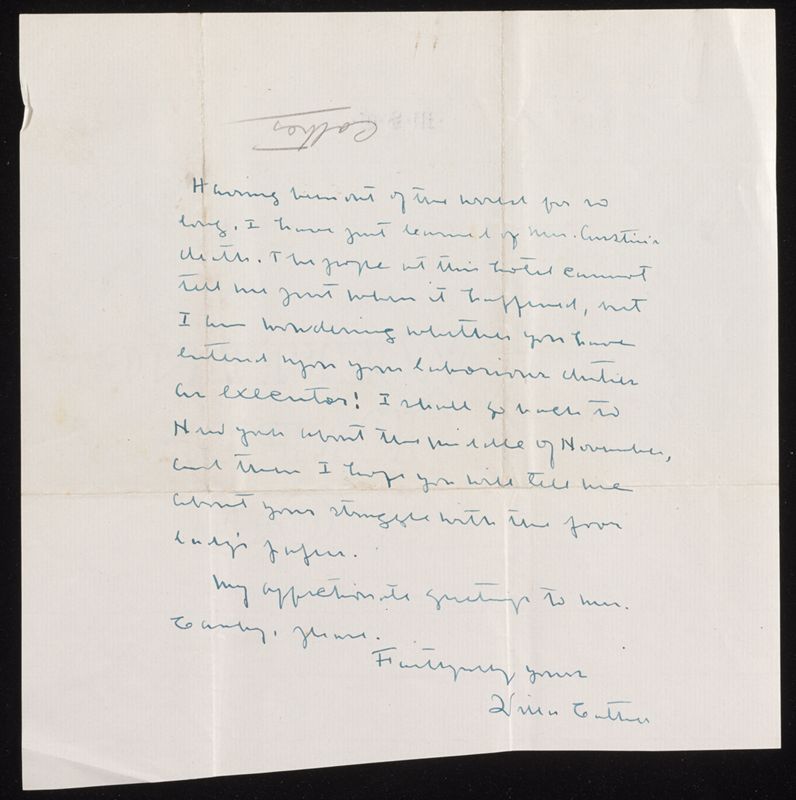 Cather
Having been out of the world for so
long, I have just learned of Mrs. Austin's
death. The people at this hotel cannot
tell me just when it happened, but
I am wondering whether you have
entered upon your laborious duties
as executor! I shall go back to
New York about the middle of November,
and then I hope you will tell me
about your struggle with the poor
lady's papers.
My affectionate greetings to Mrs.
Canby, please.
Faithfully yours
Willa Cather